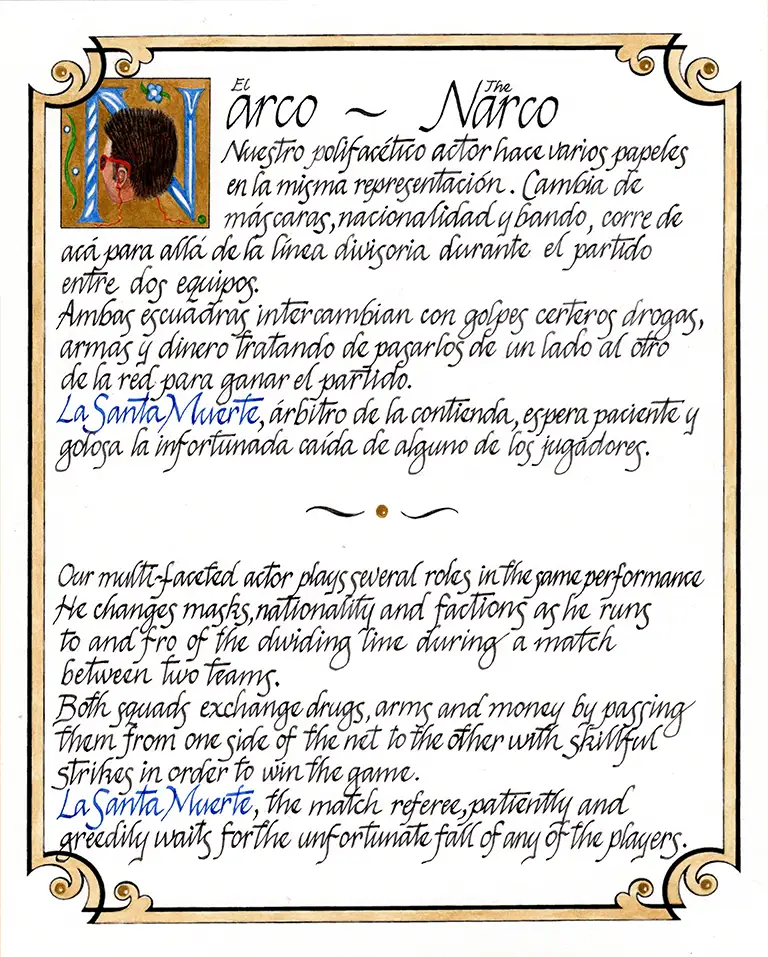 El Narco ~ The Narco
Nuestro polifacético actor hace varios papeles
en la misma representación. Cambia de
máscaras, nacionalidad y bando, corre de
acá para allá de la línea divisoria durante el partido
entre dos equipos.
Ambas escuadras intercambian con golpes certeros drogas,
armas y dinero tratando de pasarlos de un lado al otro
de la red para ganar el partido.
La Santa Muerte, árbitro de la contienda, espera paciente y
golosa la infortunada caída de alguno de los jugadores.
Our multi-faceted actor plays several roles in the same performance
He changes masks, nationality and factions as he runs
to and fro of the dividing line during a match
between two teams.
Both squads exchange drugs, arms and money by passing
them from one side of the net to the other with skillful
strikes in order to win the game.
La Santa Muerte, the match referee, patiently and
greedily waits for the unfortunate fall of any of the players.